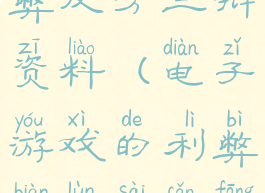 弊及劳三辩
zī liào diàn zǐ
资料（电子
yóu xì de lì bì
游戏的利弊
biàn lùn sài cǎn fāng